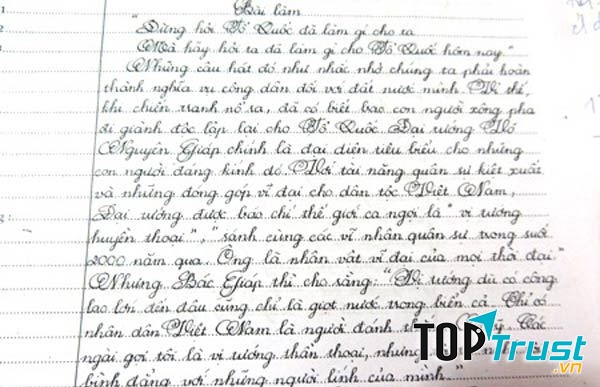 Bài làm
"Đừng hỏi Tổ Quốc đã làm gì cho ta
Mà hãy hỏi ta đã làm gì cho Tổ Quốc hôm nay."
Những câu hát đó như nhắc nhở chúng ta phải hoàn
thành nghĩa vụ công dân đối với đất nước mình. Vì thế,
khi chiến tranh nổ ra, đã có biết bao con người xông pha
đi giành độc lập lại cho Tổ Quốc. Đại tướng Võ
Nguyên Giáp chính là đại diện tiêu biểu cho những
con người đáng kính đó. Với tài năng quân sự kiệt xuất
và những đóng góp vĩ đại cho dân tộc Việt Nam,
Đại tướng được báo chí thế giới ca ngợi là "vị tướng
huyền thoại", "sánh cùng các vĩ nhân quân sự trong suốt
2000 năm qua. Ông là nhân vật vĩ đại của mọi thời đại."
Nhưng Bác Giáp thì cho rằng: "Vị tướng dù có công
lao lớn đến đâu cũng chỉ là giọt nước trong biển cả. Chỉ có
nhân dân Việt Nam là người đánh Mỹ. Các
ngài gọi tôi là vị tướng thần thoại, nhưng
bình đẳng với những người lính của mình."
TOP Trust
.vn